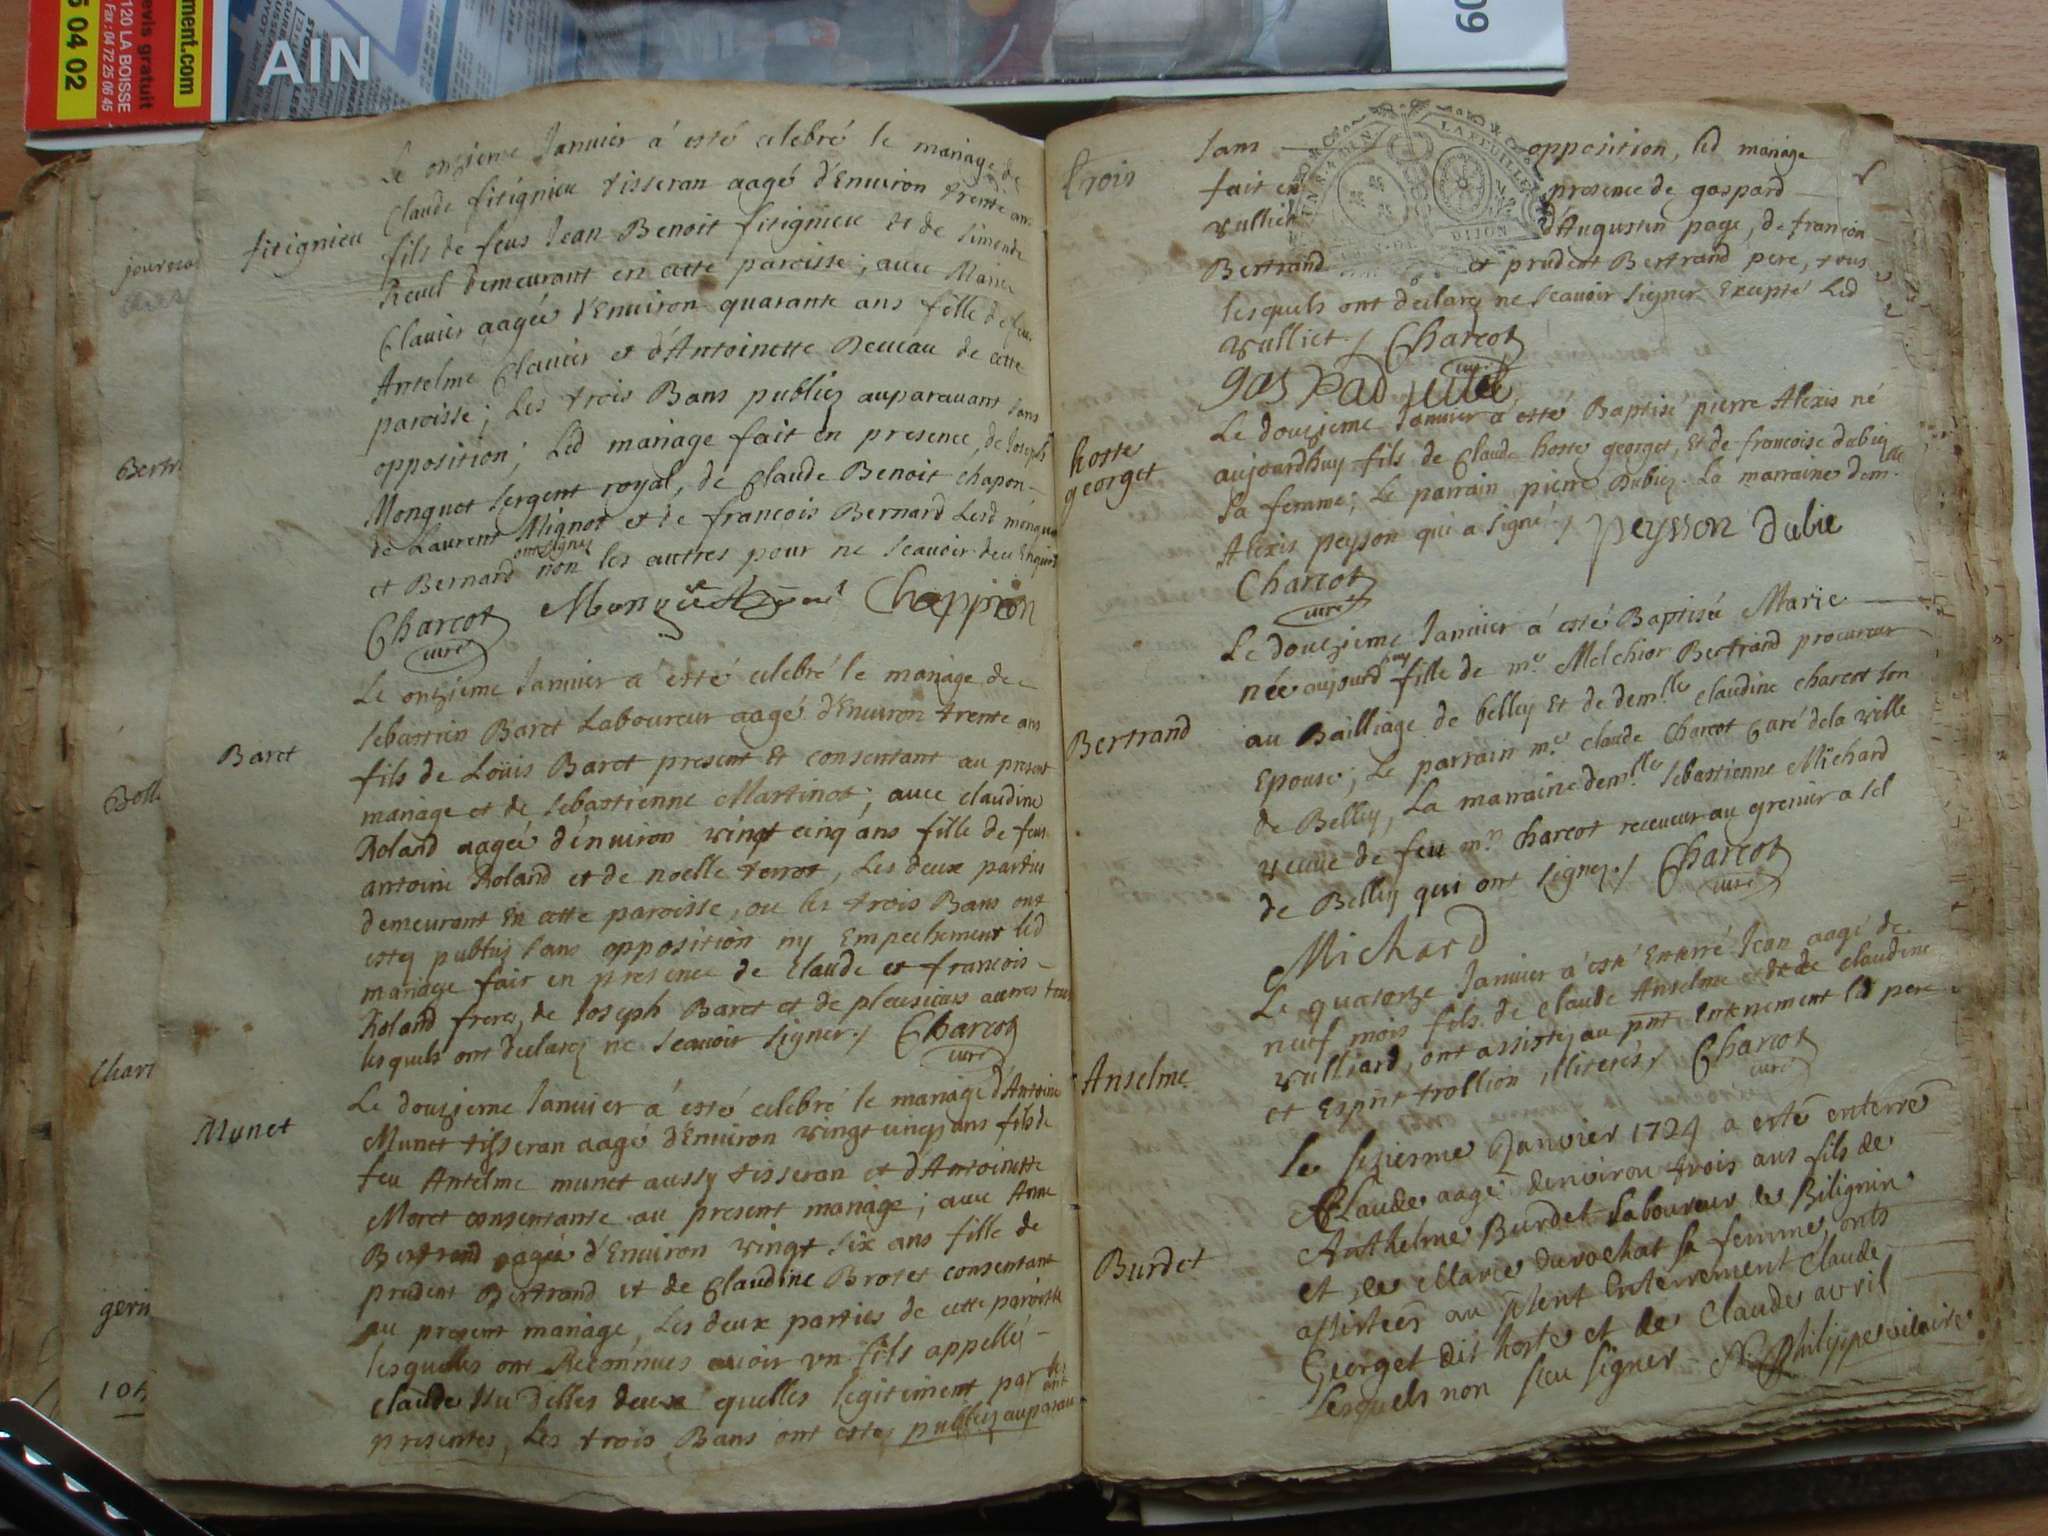 ment.com
04 02
evis gratuit
120 LA BOISSE
Fax : 04 72 25 06 45
AIN
09
journea
Bertr
Boll
Chart
gerin
Le onzieme Janvier á esté celebré le mariage de
fitignieu
Claude fitignieu tisseran aagé d'Environ trente ans
fils de feus Jean Benoit fitignieu et de Simonde
Revel demeurant en cette paroisse; avec
Clavier aagée d'Environ quarante ans fille de feu
Antelme Clavier et d'Antoinette Beveau de cette
paroisse; Les trois Bans publiez auparavant sans
opposition; Led mariage fait en presence, de Joseph
Monguet sergent royal, de Claude Benoit Chapon
de Laurent Mignot et de francois Bernard Lesd
ont signez
et Bernard non les autres pour ne Scavoir de ce Enquis
Charcot Chappion
curé
Le onzieme Janvier á esté celebré le mariage de
Baret
Sebastien Baret Laboureur aagé d'Environ trente ans
fils de Loüis Baret present Et consentant au present
mariage et de Sebastienne Martinot; avec claudine
Roland aagée d'environ vingt cinq ans fille de feus
antoine Roland et de noelle terrot, Les deux parties
demeurant En cette paroisse, ou les trois Bans ont
estez publiez sans opposition ny Empechement led
mariage fait en presence de Claude et francois
Roland freres, de Joseph Baret et de pleusieurs autres tous
lesquels ont declarez ne Scavoir signer./ Charcot
curé
Le douzieme Janvier á esté celebré le mariage d'Antoine
Munet
Munet tisseran aagé d'Environ vingt cinq ans fils de
feu Antelme munet aussy tisseran et d'Antoinette
Moret consentante au present mariage; avec Anne
Bertrand aagée d'Environ vingt six ans fille de
prudent Bertrand et de Claudine Brotet consentant
au present mariage, Les deux parties de cette paroisse
lesquelles ont Reconnues avoir un fils appellé
claude d'elles deux quelles legitiment par
presentes, Les trois Bans ont estez publiez auparavant
trois
sans opposition, led mariage
fait en presence de gaspard
vulliet d'Augustin page, de francois
Bertrand et prudent Bertrand pere, tous
LA FEUILLE
DIJON
lesquels ont declarez ne Scavoir signer Excepté Led
vulliet ./ Charcot
curé
gaspad
Le douzieme Janvier á esté Baptisé pierre Alexis né
hoste
georget
aujourdhuy fils de Claude hoste georget, Et de francoise dubiez
sa femme; Le parrain pierre Dubiez. La marraine dem.lle
Alexis peyson qui a signé / peysson dubie
Charcot
curé
Le douzieme Janvier á esté Baptisée Marie
née aujourdhuy fille de me. Melchior Bertrand procureur
Bertrand
au Bailliage de belley Et de demlle claudine charcot son
Epouse; Le parrain me. claude Charcot Curé de la ville
de Belley, La marraine demlle. Sebastienne Michard
veuve de feu mr. Charcot receveur au grenier a sel
de Belley qui ont signez./ Charcot
curé
Michard
Le quatorze Janvier á esté Enterré Jean aagé de
neuf mois fils de claude Anselme et de claudine
Anselme
vulliard, ont assistez au pnt Enterrement led pere
et Esprit trollion illiterés / Charcot
curé
Le seziesme Janvier 1724 a esté enterré
Claude aagé denviron trois ans fils de
Burdet
Anthelme Burdet laboureur de Bilignin
et de Marie Durochat sa femme, onts
assistées au present enterrement Claude
Georget dit hoste et de Claude avril
Lesquels non sceu signer Philippe vicaire